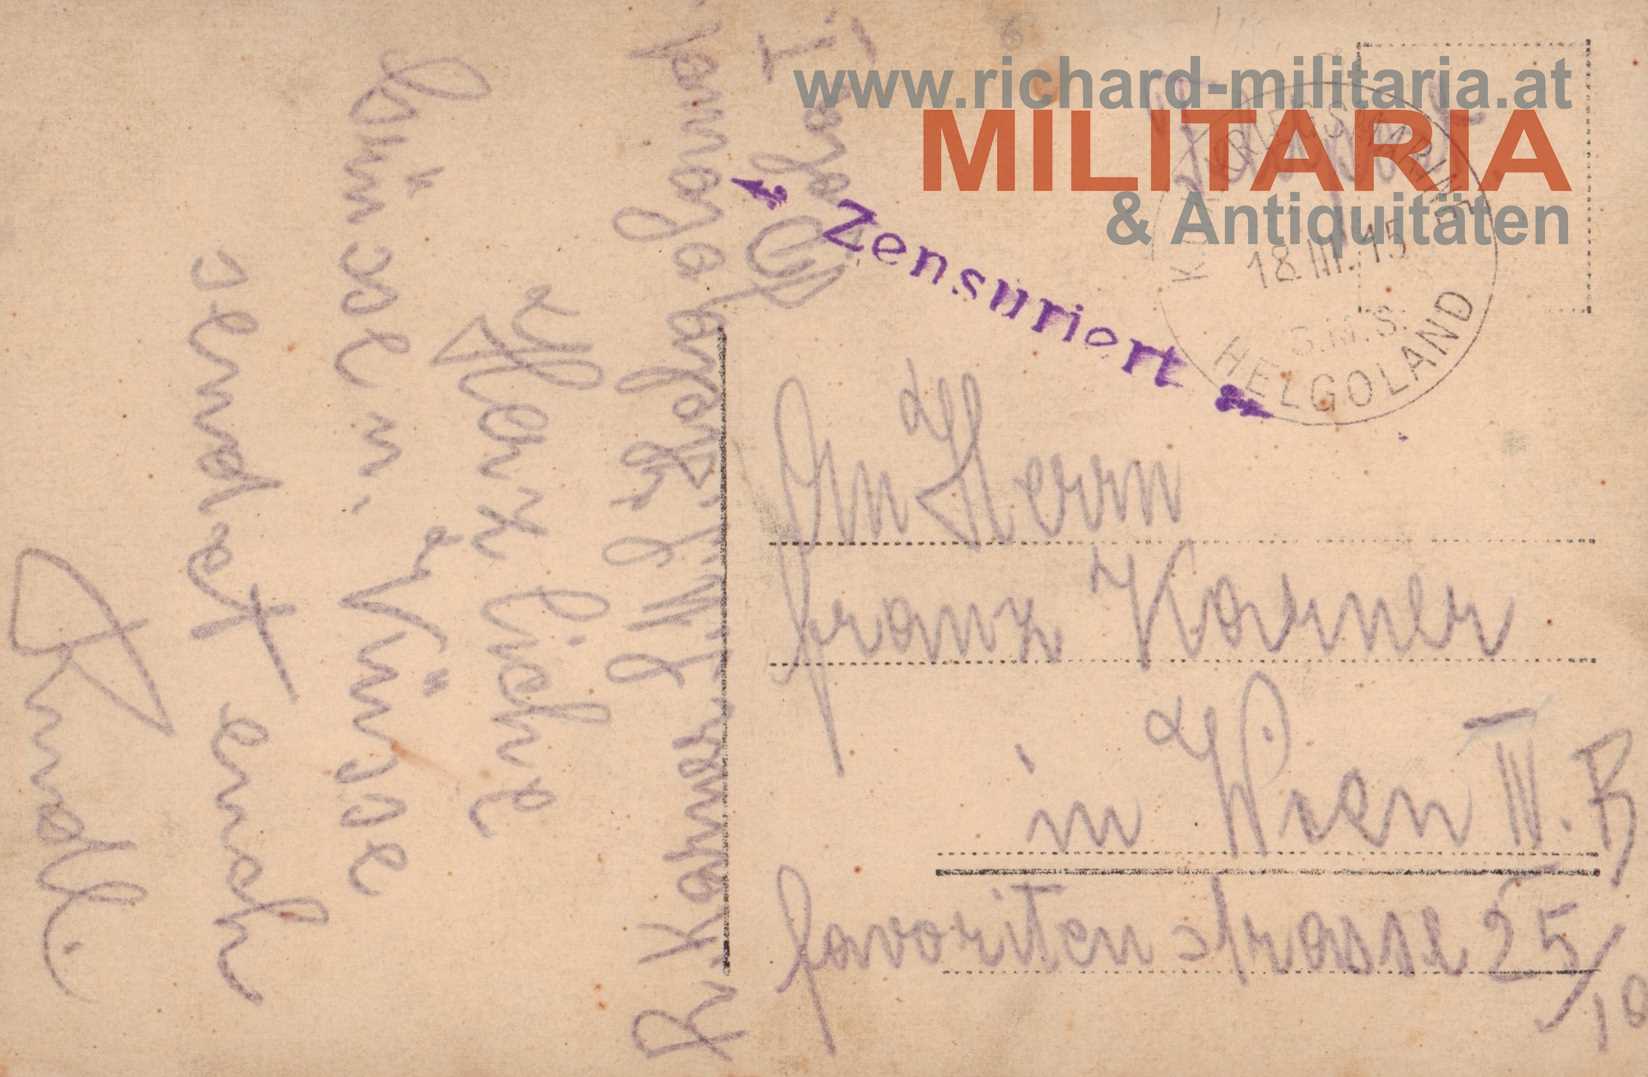 www.richard-militaria.at
MILITARIA
& Antiquitäten
Feldpost
K.U.K. KRIEGSMARINE
18.III.15
S.M.S.
HELGOLAND
Zensuriert
An Herrn
Franz Karner
in Wien IV. B
Favoritenstrasse 25/10
R. Karner
Herzliche
Grüsse u. Küsse
sendet euch
Rudl.